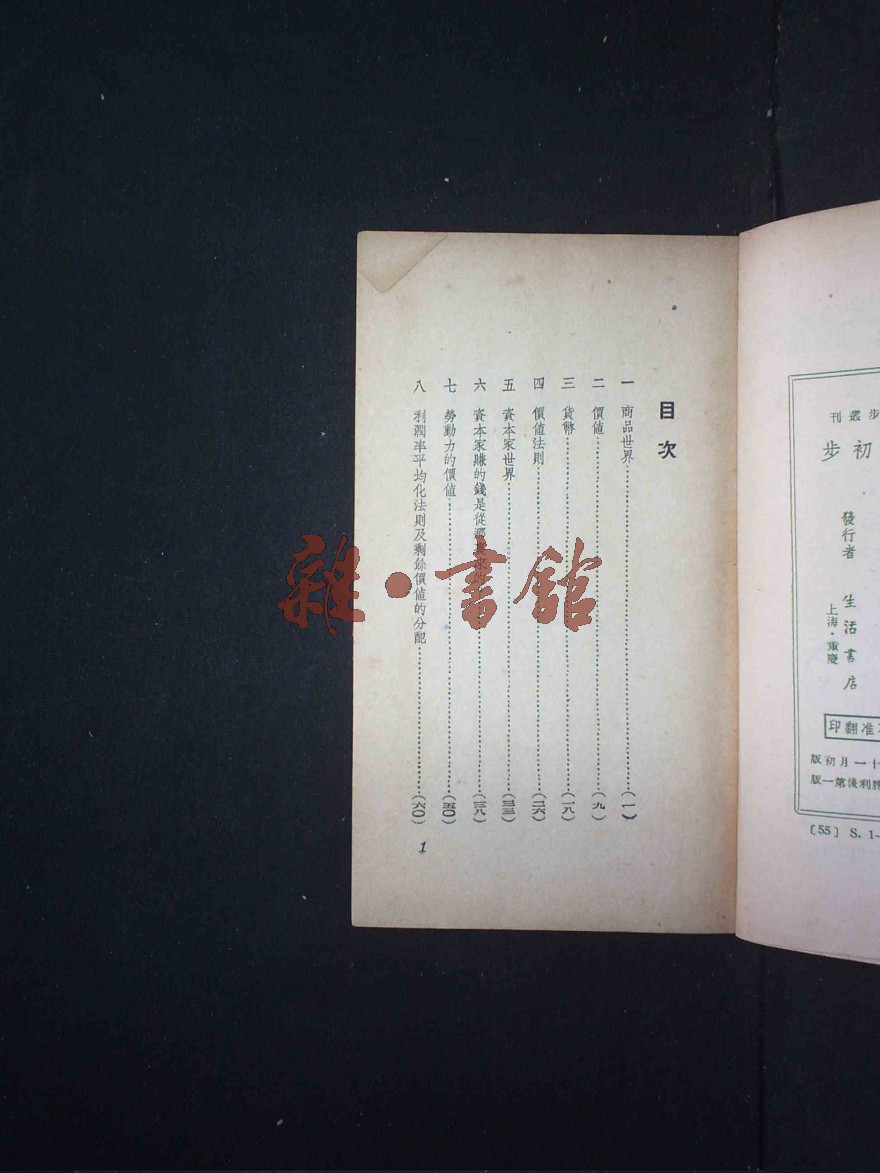 步叢刊
初步
發行者
生活書店
上海・重慶
准翻印
十一月初版
勝利後第一版
〔55〕 S. 1-
目次
一 商品世界…………(一)
二 價値…………(九)
三 貨幣…………(一八)
四 價値法則…………(二六)
五 資本家世界…………(三三)
六 資本家賺的錢是從…………(三八)
七 勞動力的價値…………(五〇)
八 利潤率平均化法則及剩餘價値的分配…………(六〇)
1
雜・書館